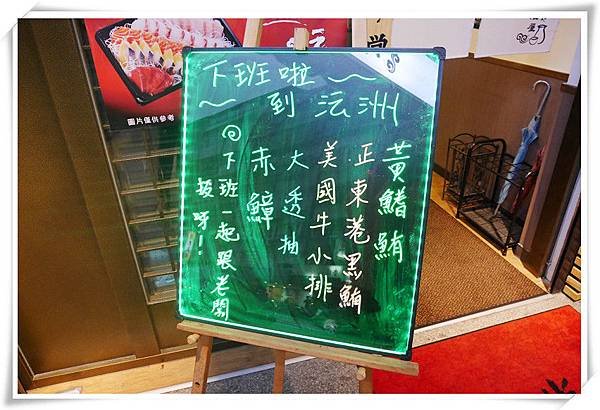 下班啦～
～到沄洲
黃鰭鮪
正東港黑鮪
美國牛小排
大透抽
赤鱆
@下班一起跟老闆
拔呀！
圖片僅供參考